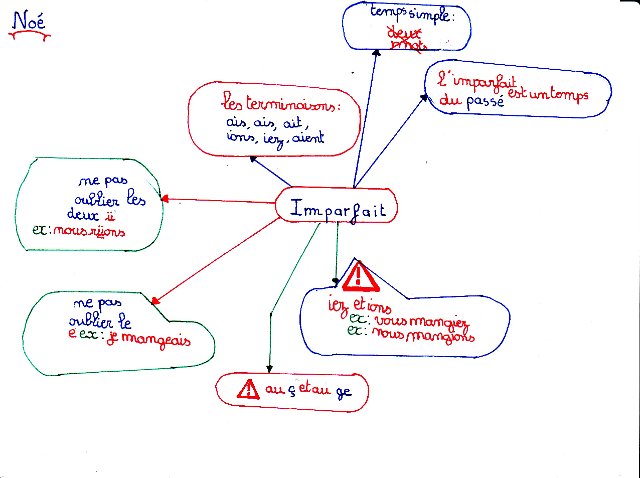 Noé
temps simple:
deux
mots
L'imparfait
est un temps
du passé
les terminaisons:
ais, ais, ait,
ions, iez, aient
ne pas
oublier les
deux ii
ex: nous riions
Imparfait
iez et ions
ex: vous mangiez
ex: nous mangions
ne pas
oublier le
e ex: je mangeais
au ç et au ge